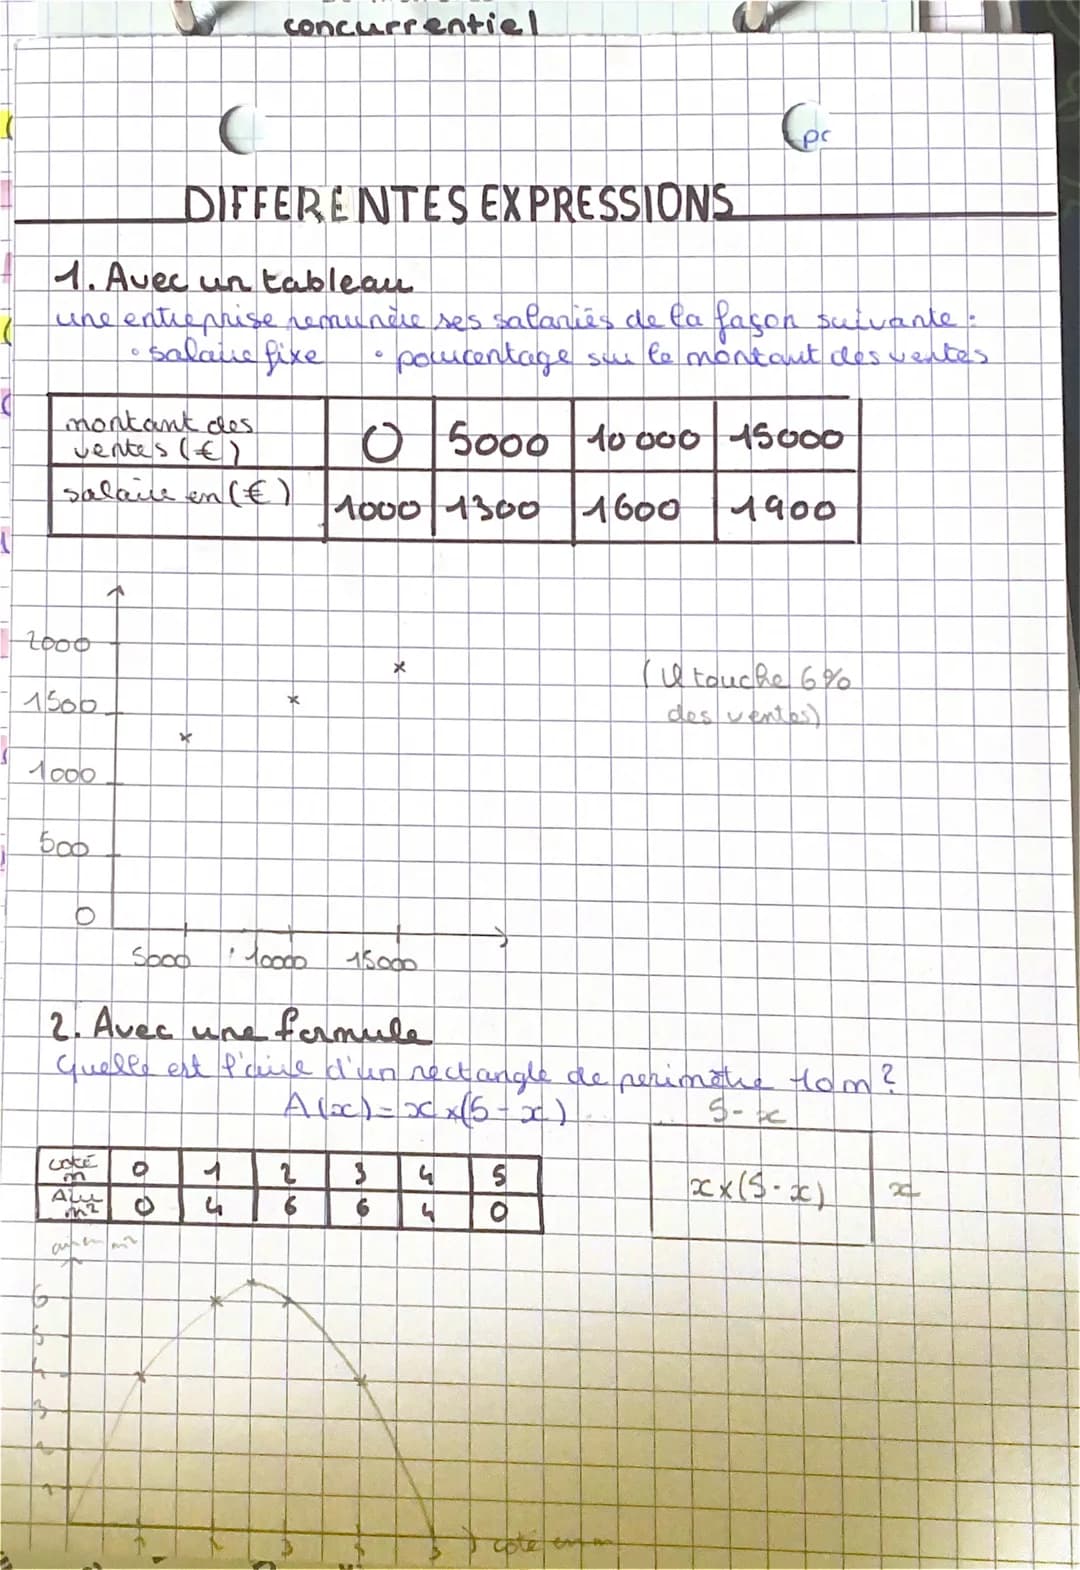 concurrentiel
pc
DIFFERENTES EXPRESSIONS
1. Avec un tableau
une entreprise remunère ses salariés de la façon suivante :
• salaire fixe • pourcentage sur le montant des ventes
montant des ventes (€) 0 5000 10 000 15000
salaire en (€) 1000 1300 1600 1900
2000
1500
1000
500
0
5000 10000 15000
(Il touche 6%
des ventes)
2. Avec une formule
Quelle est l'aire d'un rectangle de perimètre 10 m ?
A(x) = x x (5 - x)
5 - x
x x (5 - x) x
coté m 0 1 2 3 4 5
Aire m² 0 4 6 6 4 0
6
5
4
3
2
1
3
5
coté en m